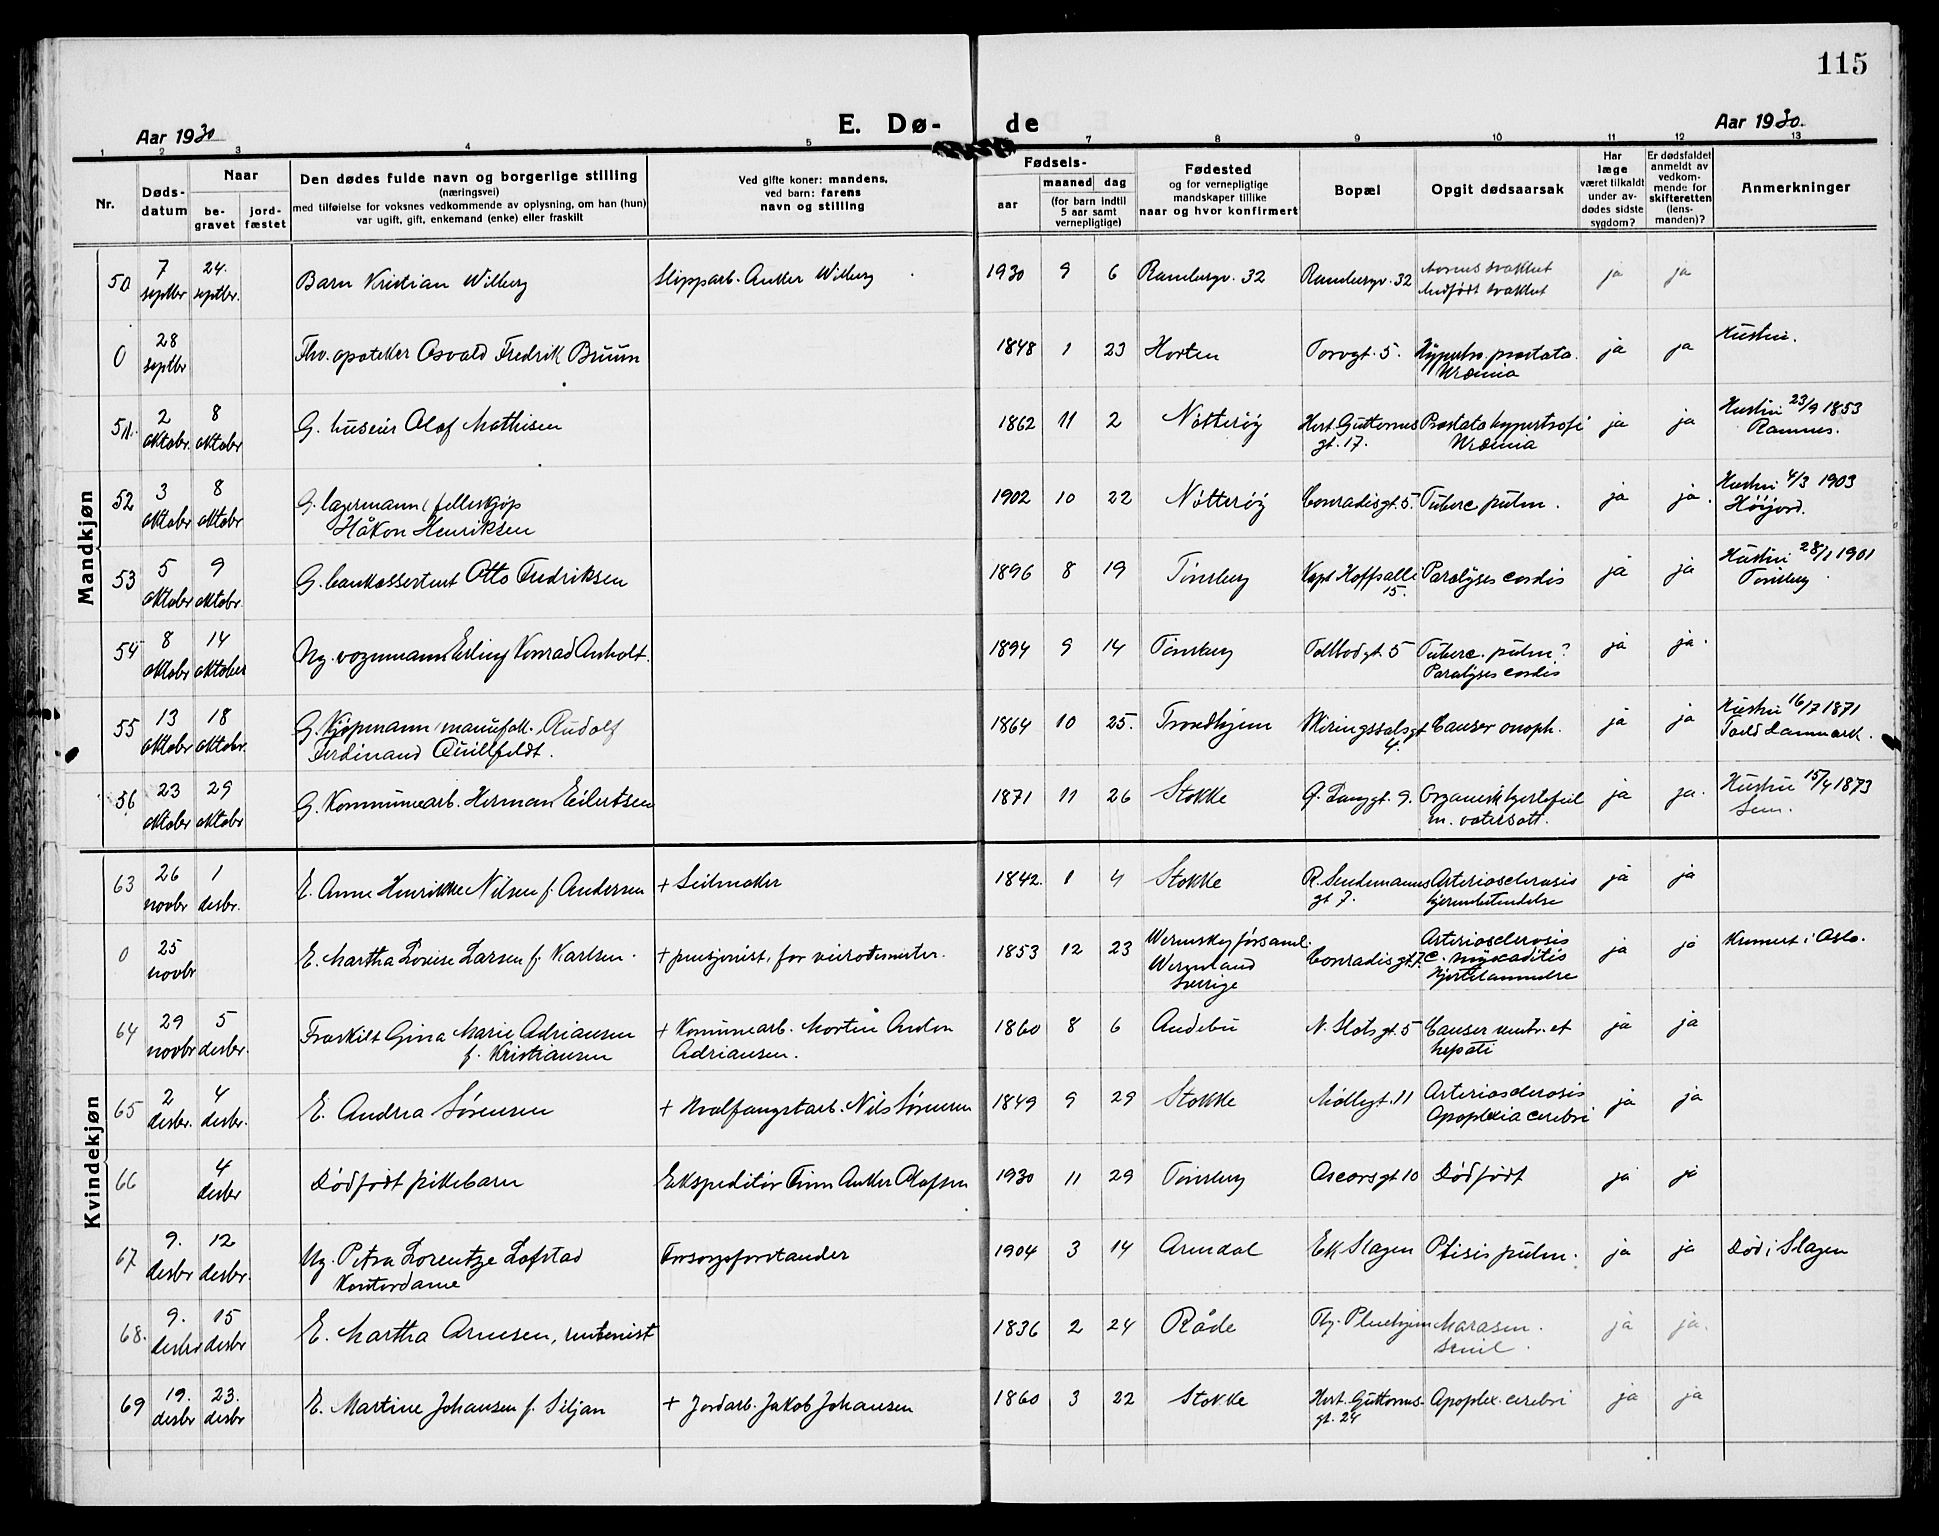 115
Aar 1930
E. Dø-
de
Aar 1930.
1 2 3 4 5 7 8 9 10 11 12 13
Nr.
Døds-
datum
Naar
be-
gravet
jord-
fæstet
Den dødes fulde navn og borgerlige stilling
(næringsvei)
med tilføielse for voksnes vedkommende av oplysning, om han (hun)
var ugift, gift, enkemand (enke) eller fraskilt
Ved gifte koner: mandens,
ved barn: farens
navn og stilling
Fødsels-
aar
maaned
dag
(for barn indtil
5 aar samt
vernepligtige)
Fødested
og for vernepligtige
mandskaper tillike
naar og hvor konfirmert
Bopæl
Opgit dødsaarsak
Har
læge
været tilkaldt
under av-
dødes sidste
sygdom?
Er dødsfaldet
anmeldt av
vedkom-
mende for
skifteretten
(lens-
manden)?
Anmerkninger
Mandkjøn
50 7 septbr 24. septbr. Barn Kristian Wilberg Slipparb. Anker Wilberg 1930 9 6 Rambergv. 32 Rambergv. 32 svakhet
Medfødt svakhet ja ja
0 28 septbr Fhv. apoteker Osvald Fredrik Bruun 1848 1 23 Horten Torvgt. 5. Hypertro. prostata.
Uræmia ja ja Hustru.
51. 2 oktobr 8 oktobr G. huseier Olaf Mathisen 1862 11 2 Nøtterøy Hert. Guttorms
gt. 17. Prostata hypertrofi
Uræmia ja ja Hustru 23/9 1853
Ramnes.
52 3 oktobr 8 oktobr G. lagermann i felleskjøp
Håkon Henriksen 1902 10 22 Nøtterøy Conradisgt. 5. Tuberc pulm. ja ja. Hustru 4/3 1903
Høijord.
53 5 oktobr 9 oktobr. G. bankassistent Otto Fredriksen 1896 8 19 Tønsberg Kapt Hoffsalle
15. Paralyses cordis ja ja Hustru 28/1 1901
Tønsberg
54 8 oktobr 14 oktober Ug. vognmann Erling Konrad Anholt. 1894 9 14 Tønsberg Tollbodgt. 5 Tuberc. pulm?
Paralyses cordis ja ja.
55 13 oktobr 18 oktobr. G. Kjøpmann i manufak. Rudolf
Ferdinand Quillfeldt. 1864 10 25. Trondhjem
4. Cancer onoph. ja ja Hustru 16/7 1871
Danmark.
56 23 oktobr 29 oktobr G. Kommunearb. Herman Eilertsen 1871 11 26 Stokke G. Langgt. 9. Organisk hjertefeil
m. vatersott. ja ja. Hustru 15/4 1873
Sem.
Kvindekjøn
63 26 novbr 1 desbr. E. Anne Henrikke Nilsen f. Andersen + Seilmaker 1842. 1 4 Stokke
gt 7. Arteriosclerosis
hjernebetendelse ja ja
0 25 novbr E. Martha Lovise Larsen f. Karlsen. + pensjonist, for 1853 12 23
Wermland
Sverige Conradisgt 7. Arteriosclerosis
c. myocaditis
hjertelammelse ja ja Kremert i Oslo.
64 29 novbr 5 desbr. Fraskilt Gina Marie Adriansen
f. Kristiansen + Komunearb. Martin Anton
Adriansen. 1860 8 6 Andebu N. Slotsgt. 5 Cancer ventr. et
hepati ja ja
65 2 desbr. 4 desbr. E. Andrea Sørensen + Hvalfangstarb. Nils Sørensen 1849 9 29 Stokke Møllegt. 11 Arteriosclerosis
Apoplexia cerebri ja ja
66 4 desbr Dødfødt pikebarn Ekspeditør Finn Anker Olafsen 1930 11 29 Tønsberg Oscarsgt 10 Dødfødt ja ja
67 9. desbr 12 desbr. Ug. Petra Lorentze Lofstad
Kontordame Forsorgsforstander 1904 3 14 Arendal Ek Slagen Ptisis pulm. ja ja Død i Slagen
68. 9. desbr 15 desbr E. Martha Arnesen, rentenist 1836 2 24 Råde Marasm.
senil. ja ja.
69 19. desbr 23. desbr E. Martine Johansen f. Siljan + Jordarb. Jakob Johansen 1860 3 22 Stokke Hert. Guttorms-
gt. 24 Apoplex. cerebri ja ja